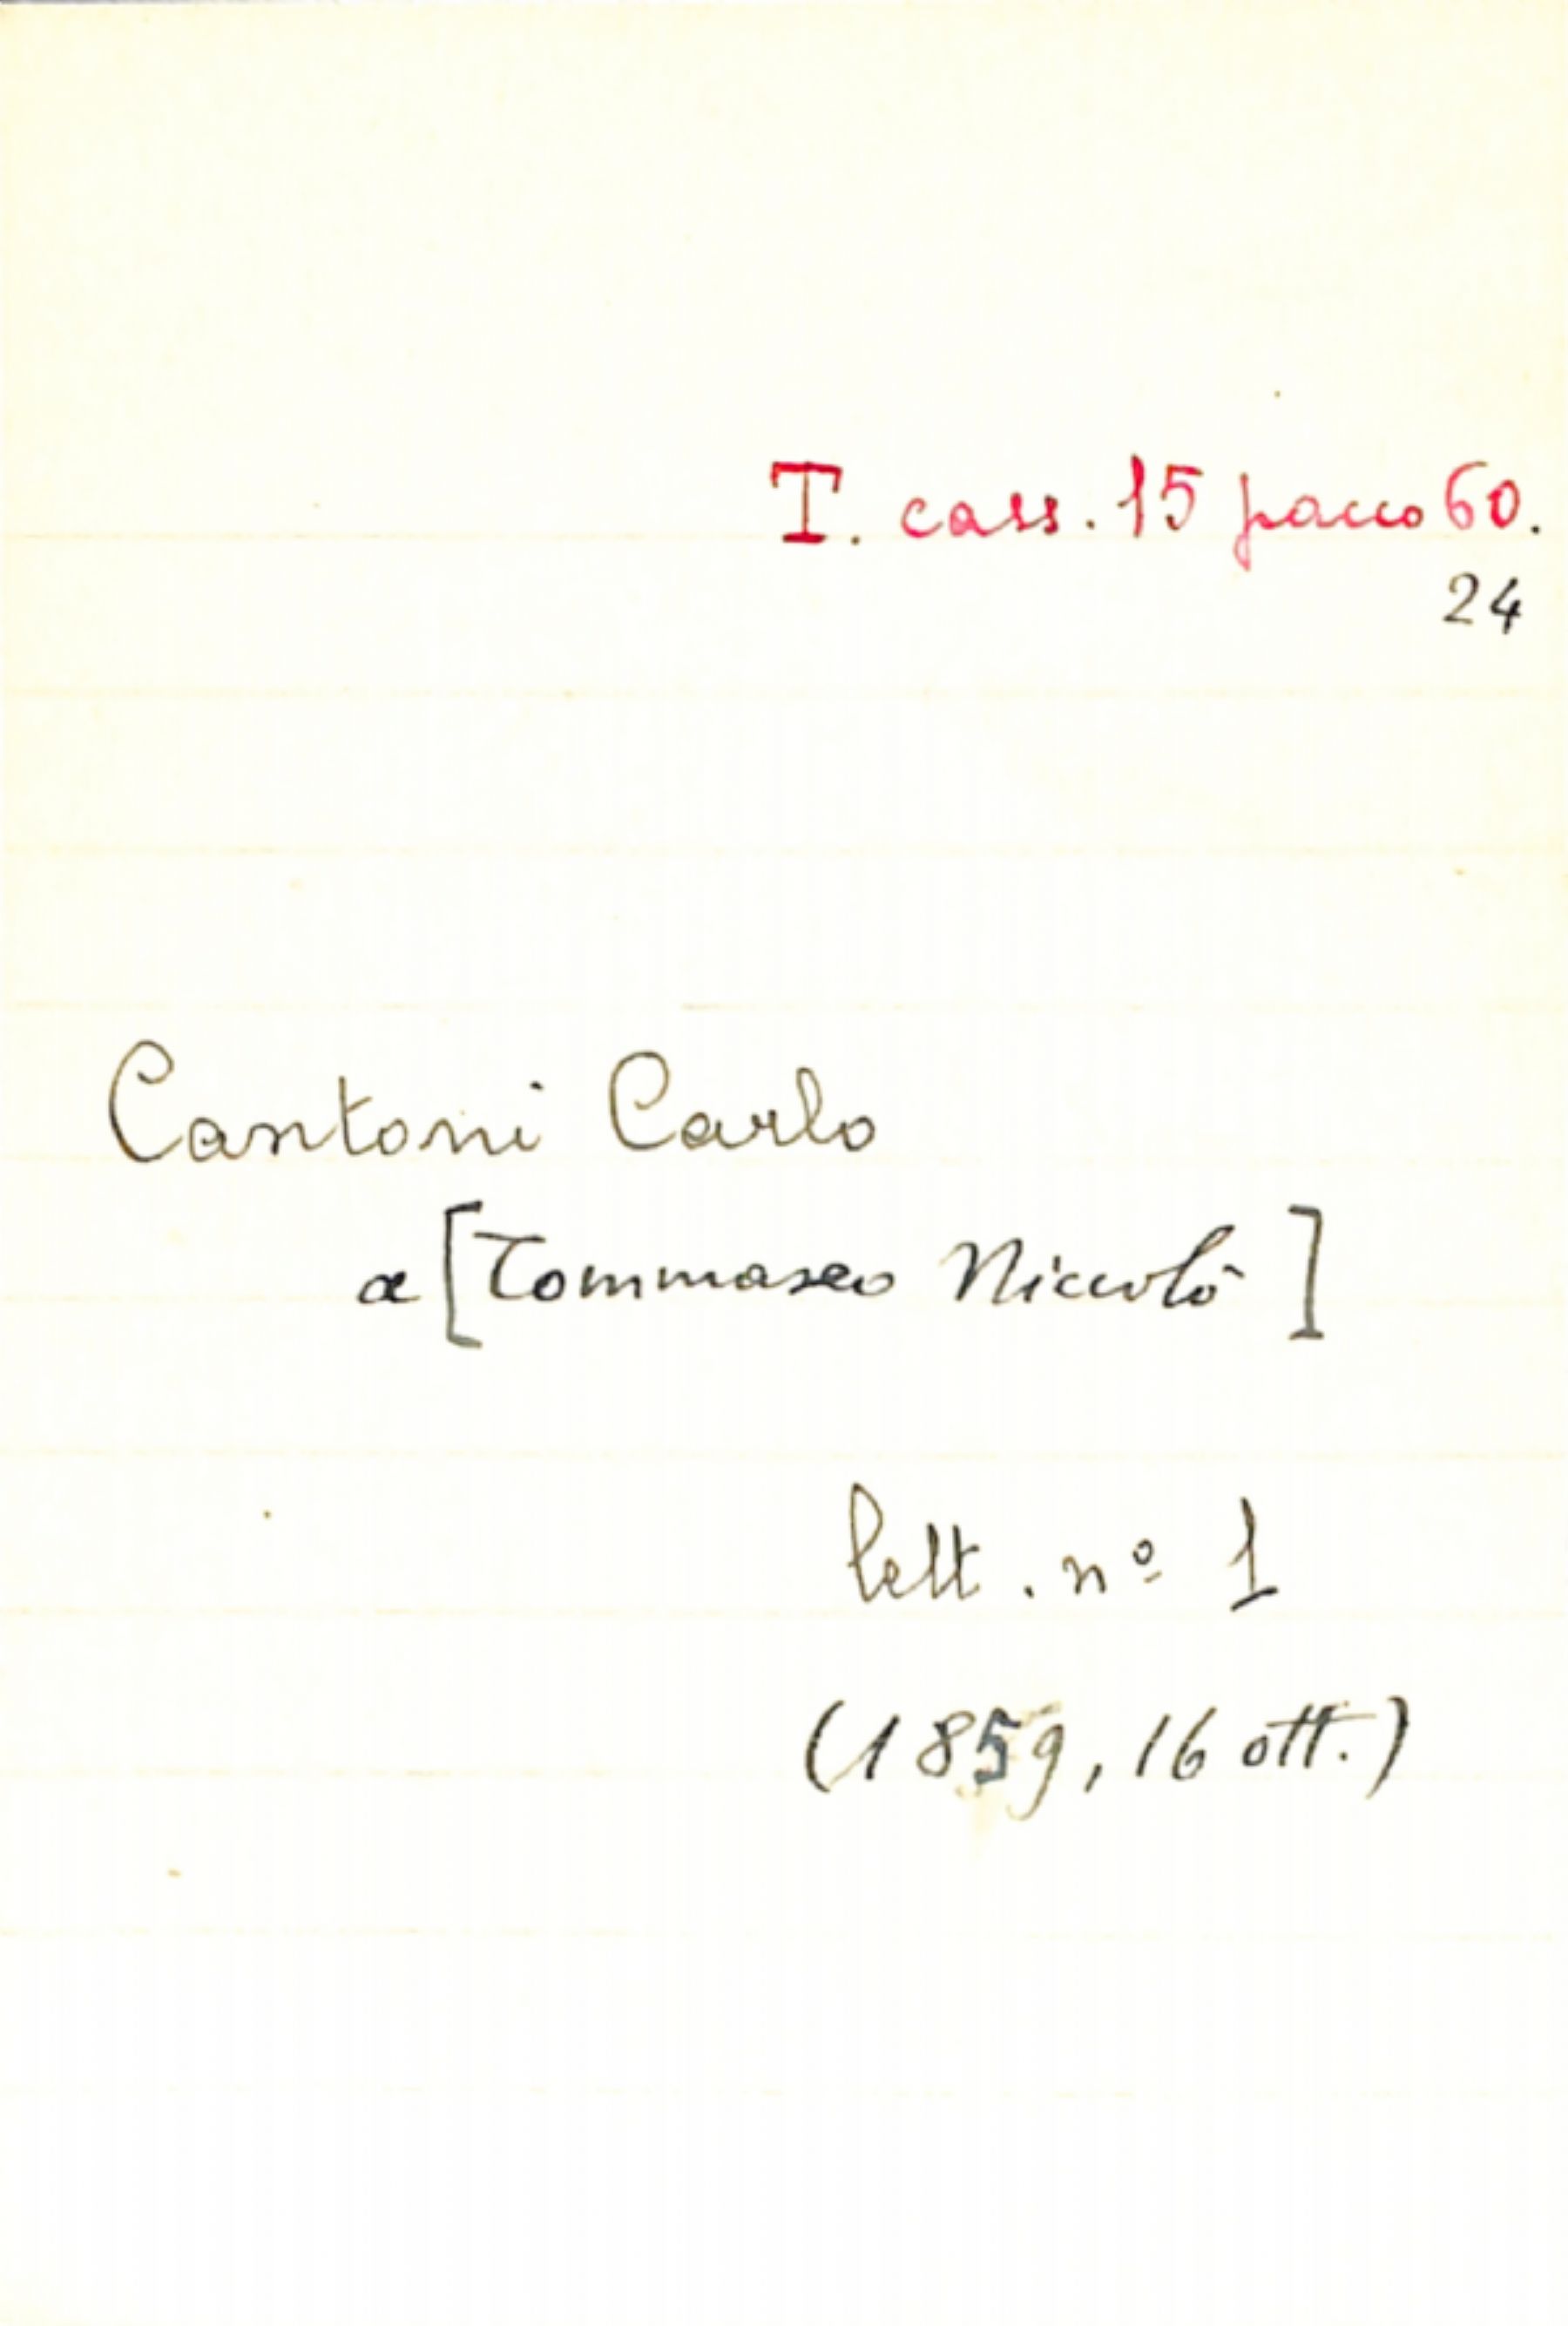 T. cass. 15 pacco 60.
24
Cantoni Carlo
a [Tommaseo Niccolò]
lett. nº 1
(1859, 16 ott.)